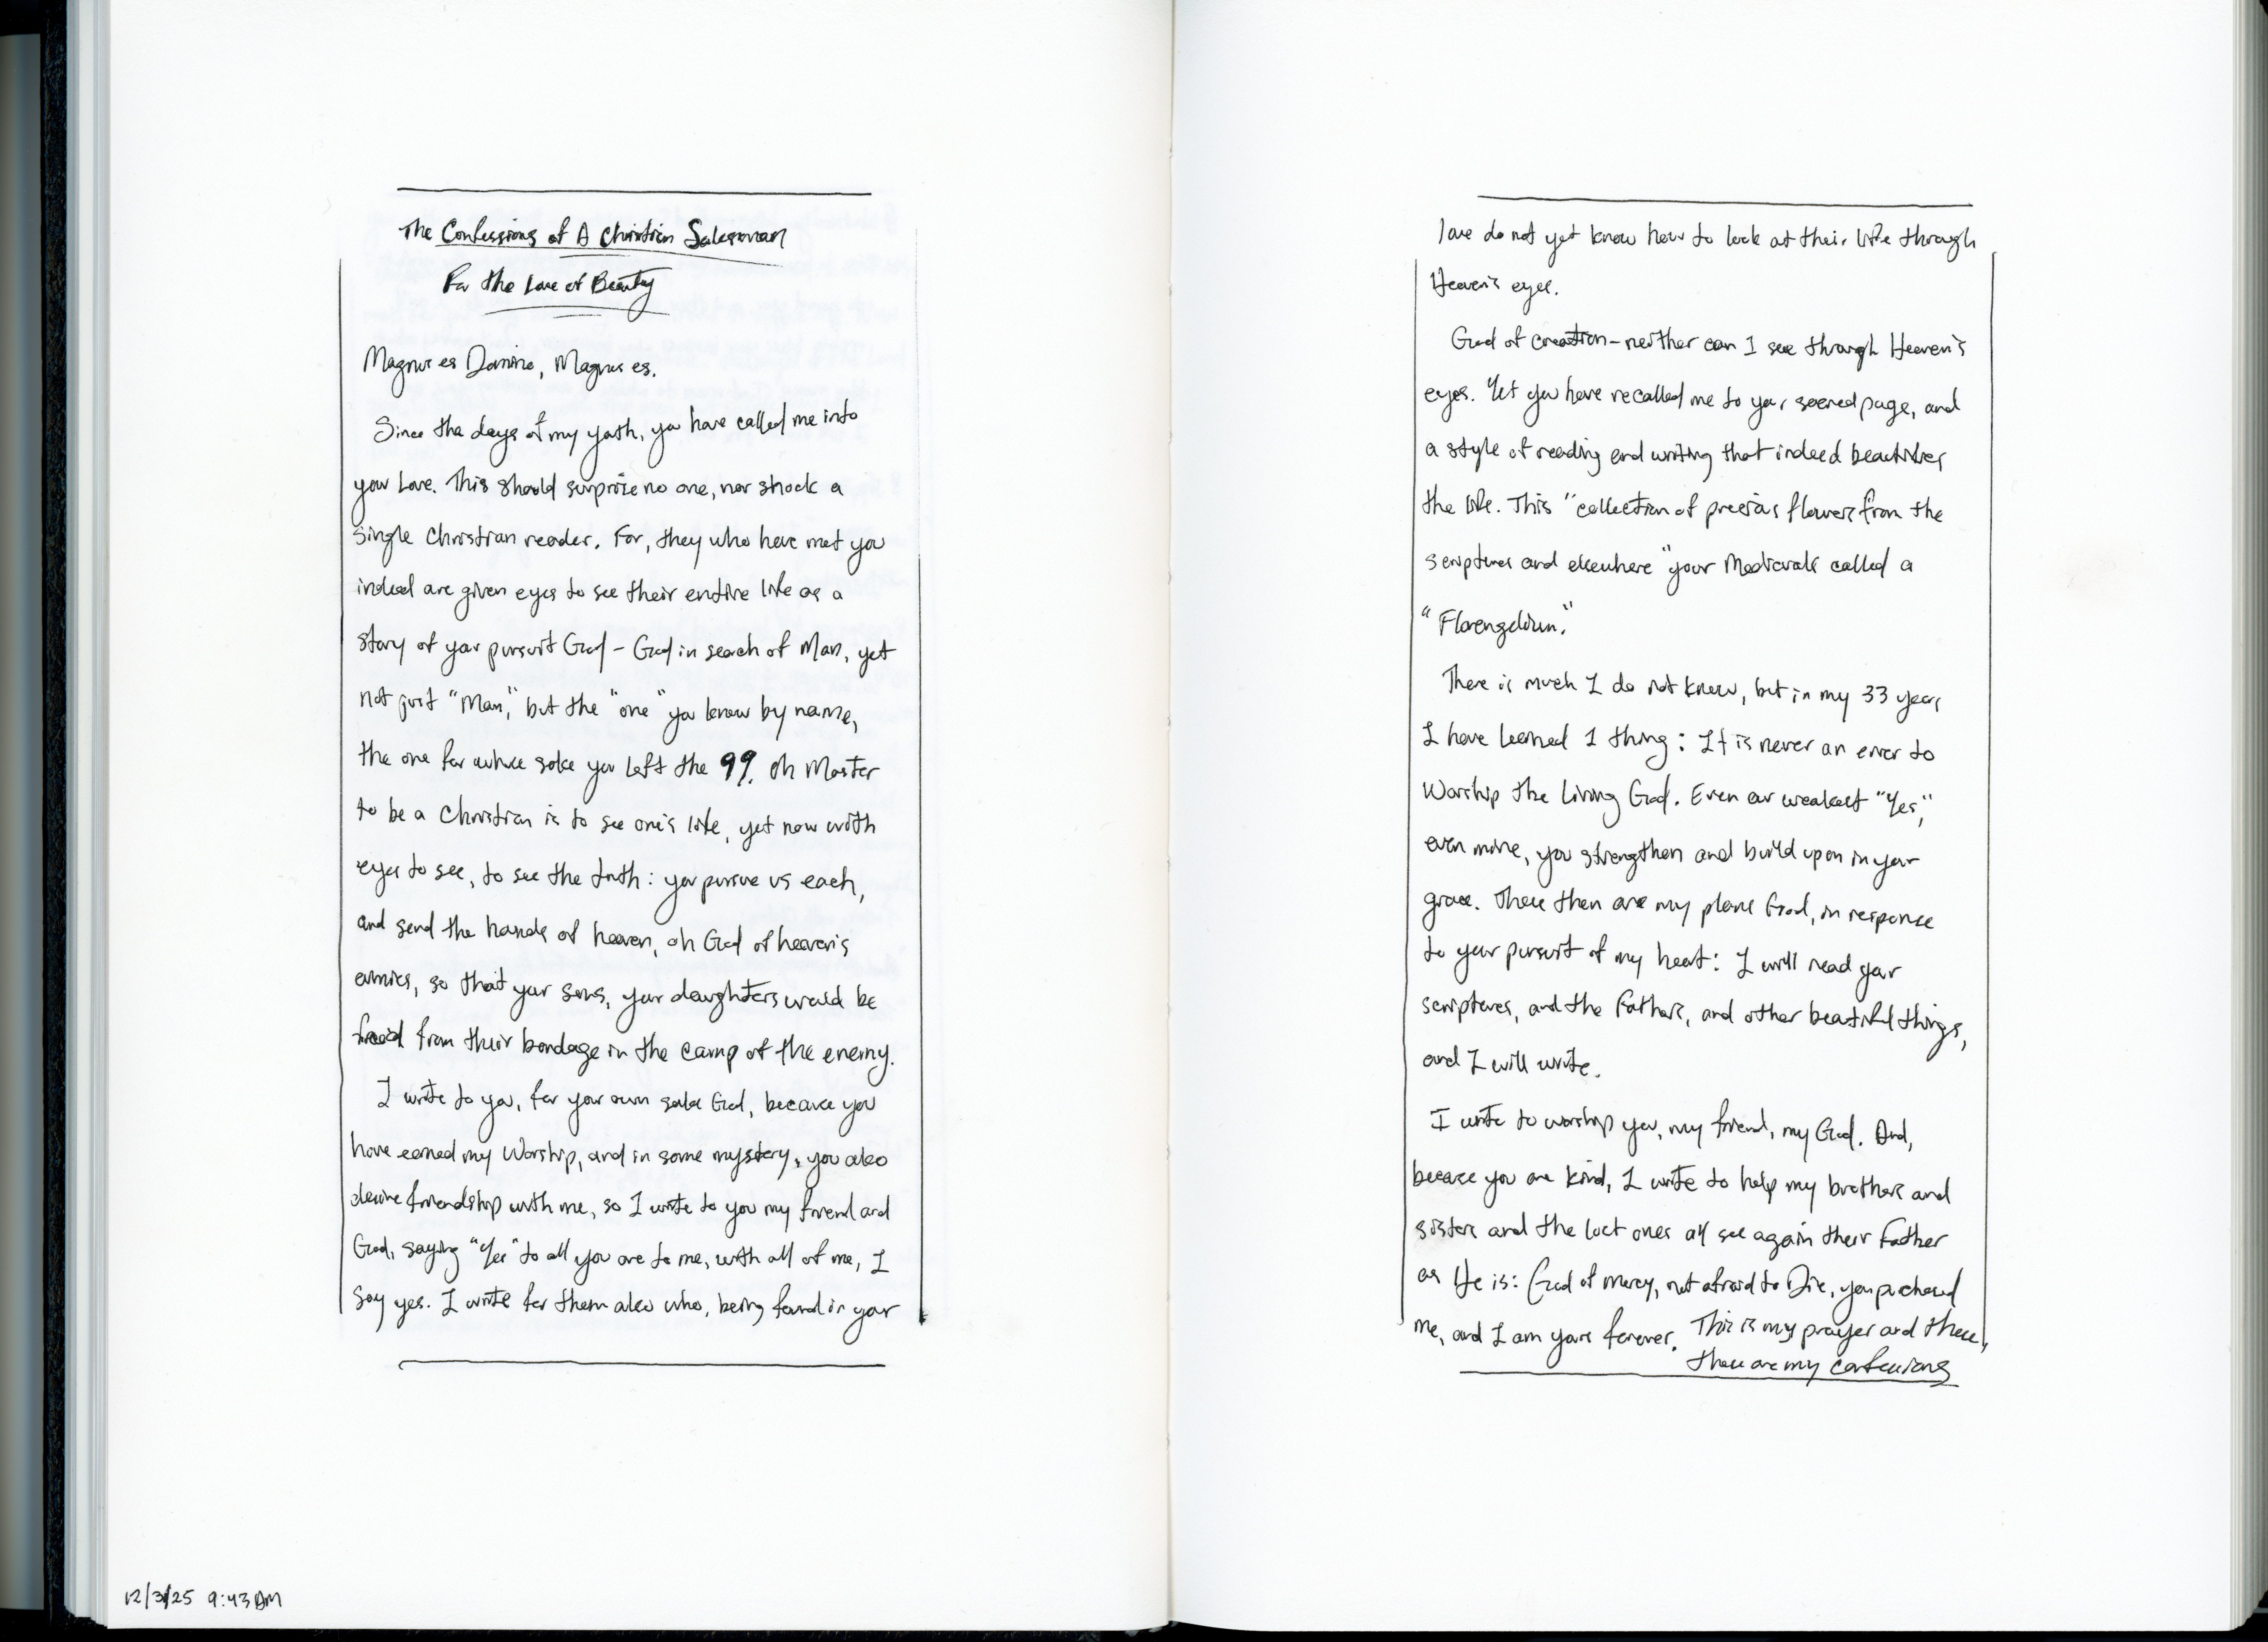 The Confessions of A Christian Salesman
For the Love of Beauty
Magnus es Domine, Magnus es.
Since the days of my youth, you have called me into
your Love. This should surprise no one, nor shock a
single Christian reader. For, they who have met you
indeed are given eyes to see their entire life as a
story of your pursuit God - God in search of Man, yet
not just "Man," but the "one" you know by name,
the one for whose sake you left the 99. Oh Master
to be a Christian is to see one's life, yet now with
eyes to see, to see the truth: you pursue us each,
and send the hands of heaven, oh God of heaven's
armies, so that your sons, your daughters would be
freed from their bondage in the camp of the enemy.
I write to you, for your own sake God, because you
have earned my Worship, and in some mystery, you also
desire friendship with me, so I write to you my friend and
God, saying "Yes" to all you are to me, with all of me, I
say yes. I write for them also who, being found in your
12/3/25 9:43 AM
love do not yet know how to look at their life through
Heaven's eyes.
God of creation - neither can I see through Heaven's
eyes. Yet you have recalled me to your sacred page, and
a style of reading and writing that indeed beautifies
the life. This "collection of precious flowers from the
scriptures and elsewhere" your Medievals called a
"Florengelium."
There is much I do not know, but in my 33 years
I have learned 1 thing: It is never an error to
Worship the Living God. Even our weakest "Yes,"
even mine, you strengthen and build upon in your
grace. These then are my plans God, in response
to your pursuit of my heart: I will read your
scriptures, and the Fathers, and other beautiful things,
and I will write.
I write to worship you, my friend, my God. And,
because you are kind, I write to help my brothers and
sisters and the lost ones all see again their Father
as He is: God of mercy, not afraid to Die, you purchased
me, and I am yours forever. This is my prayer and these,
these are my confessions